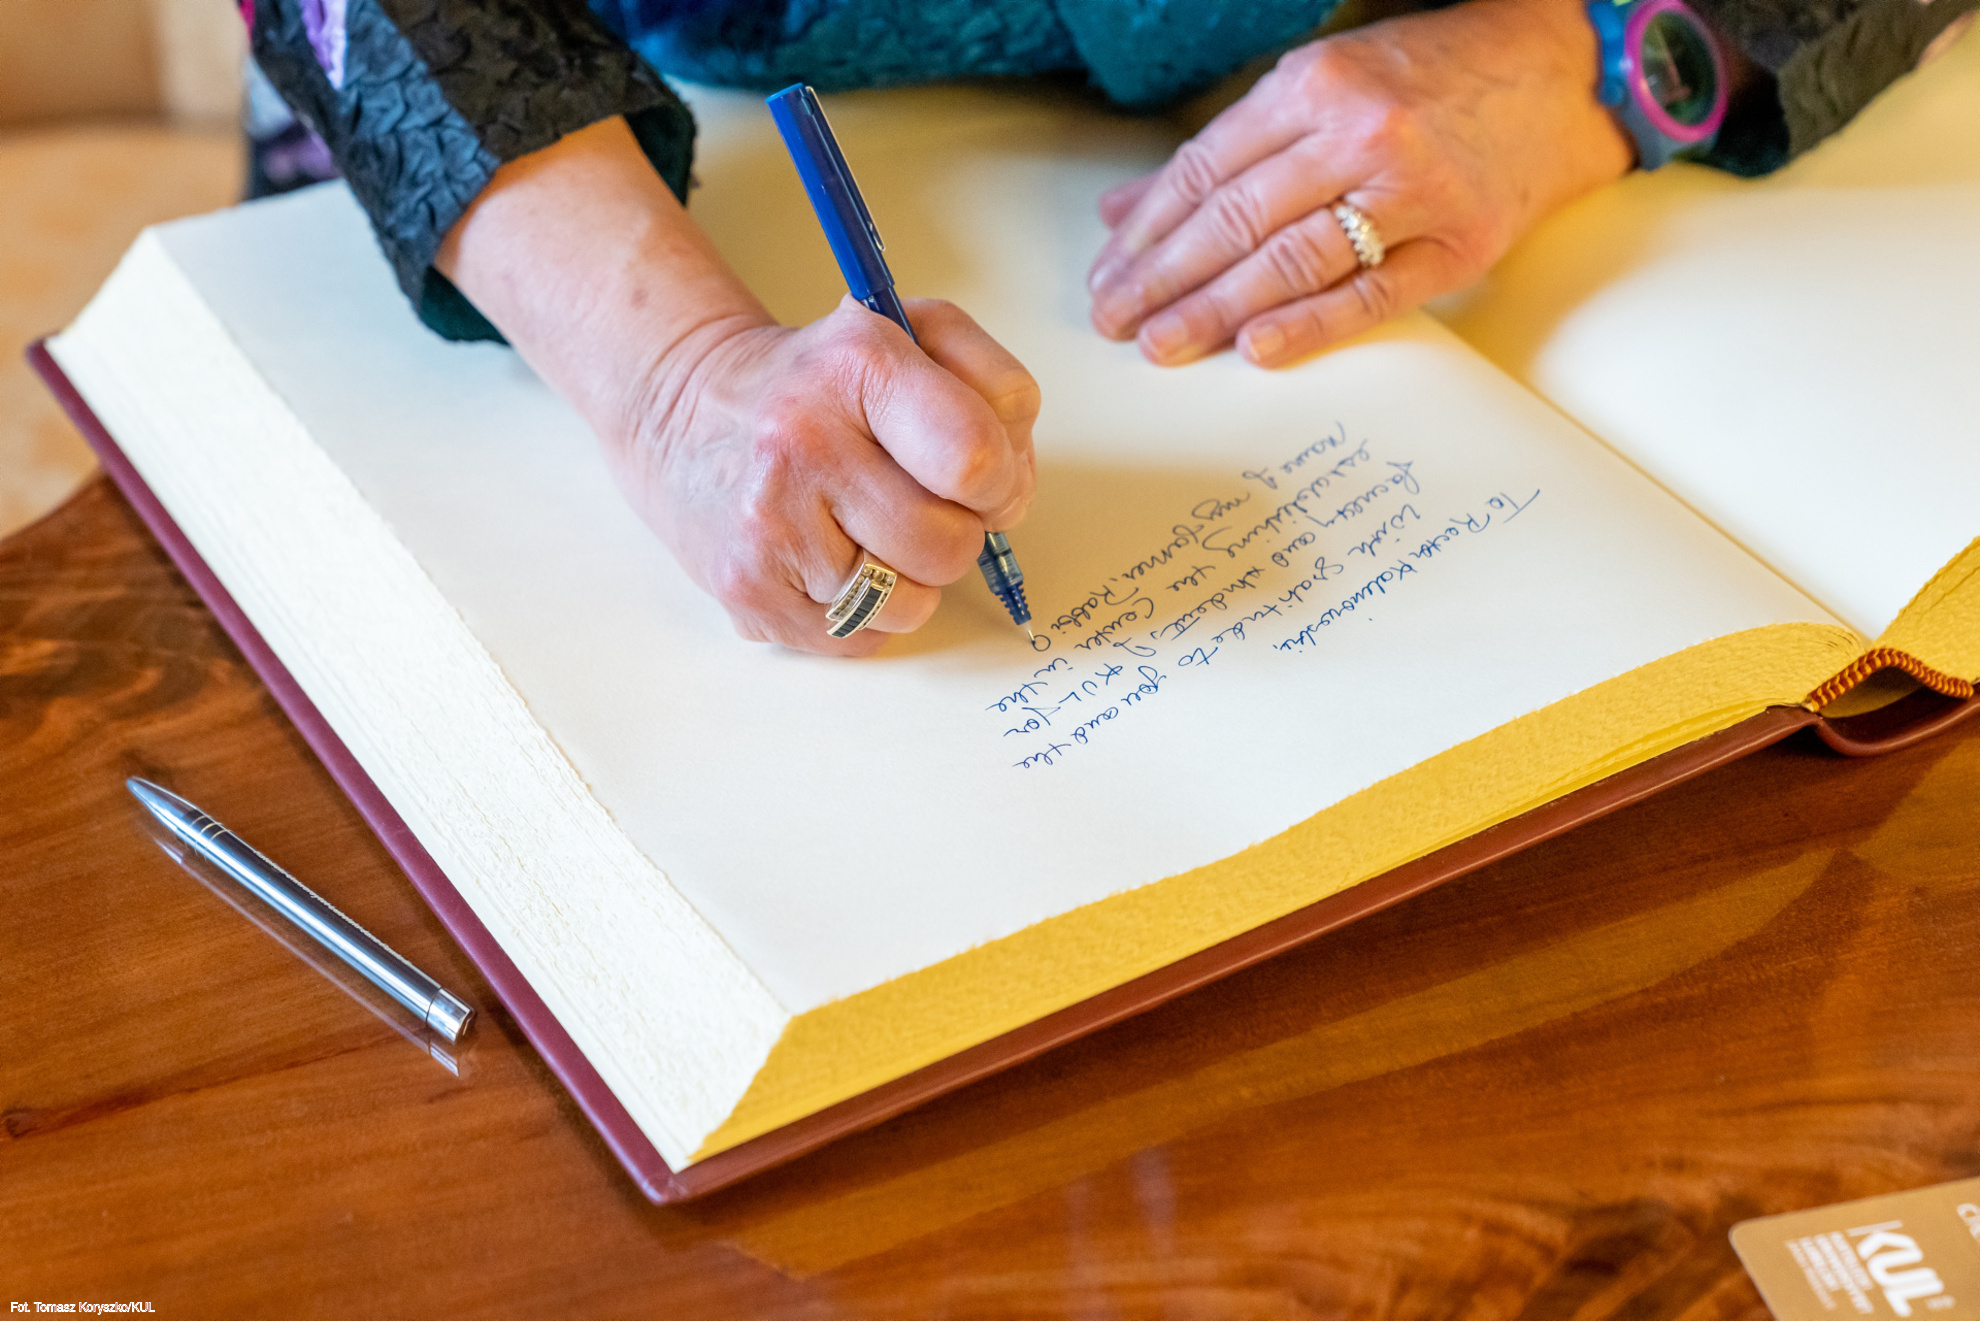 To Rector Kalinowski,
With gratitude to you and the
faculty and students of KUL for
establishing the Center in the
name of my father, Rabbi
Fot. Tomasz Koryszko/KUL
KUL